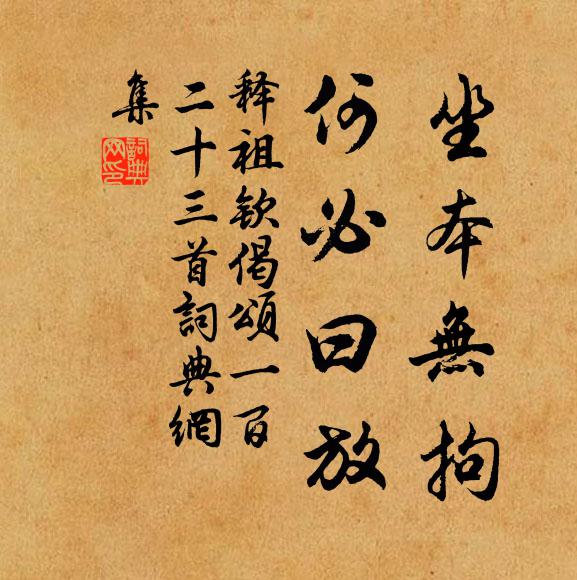 坐本無拘
何必曰放
释祖钦偈頌一百
二十三首詞典網
集
詞典
网印